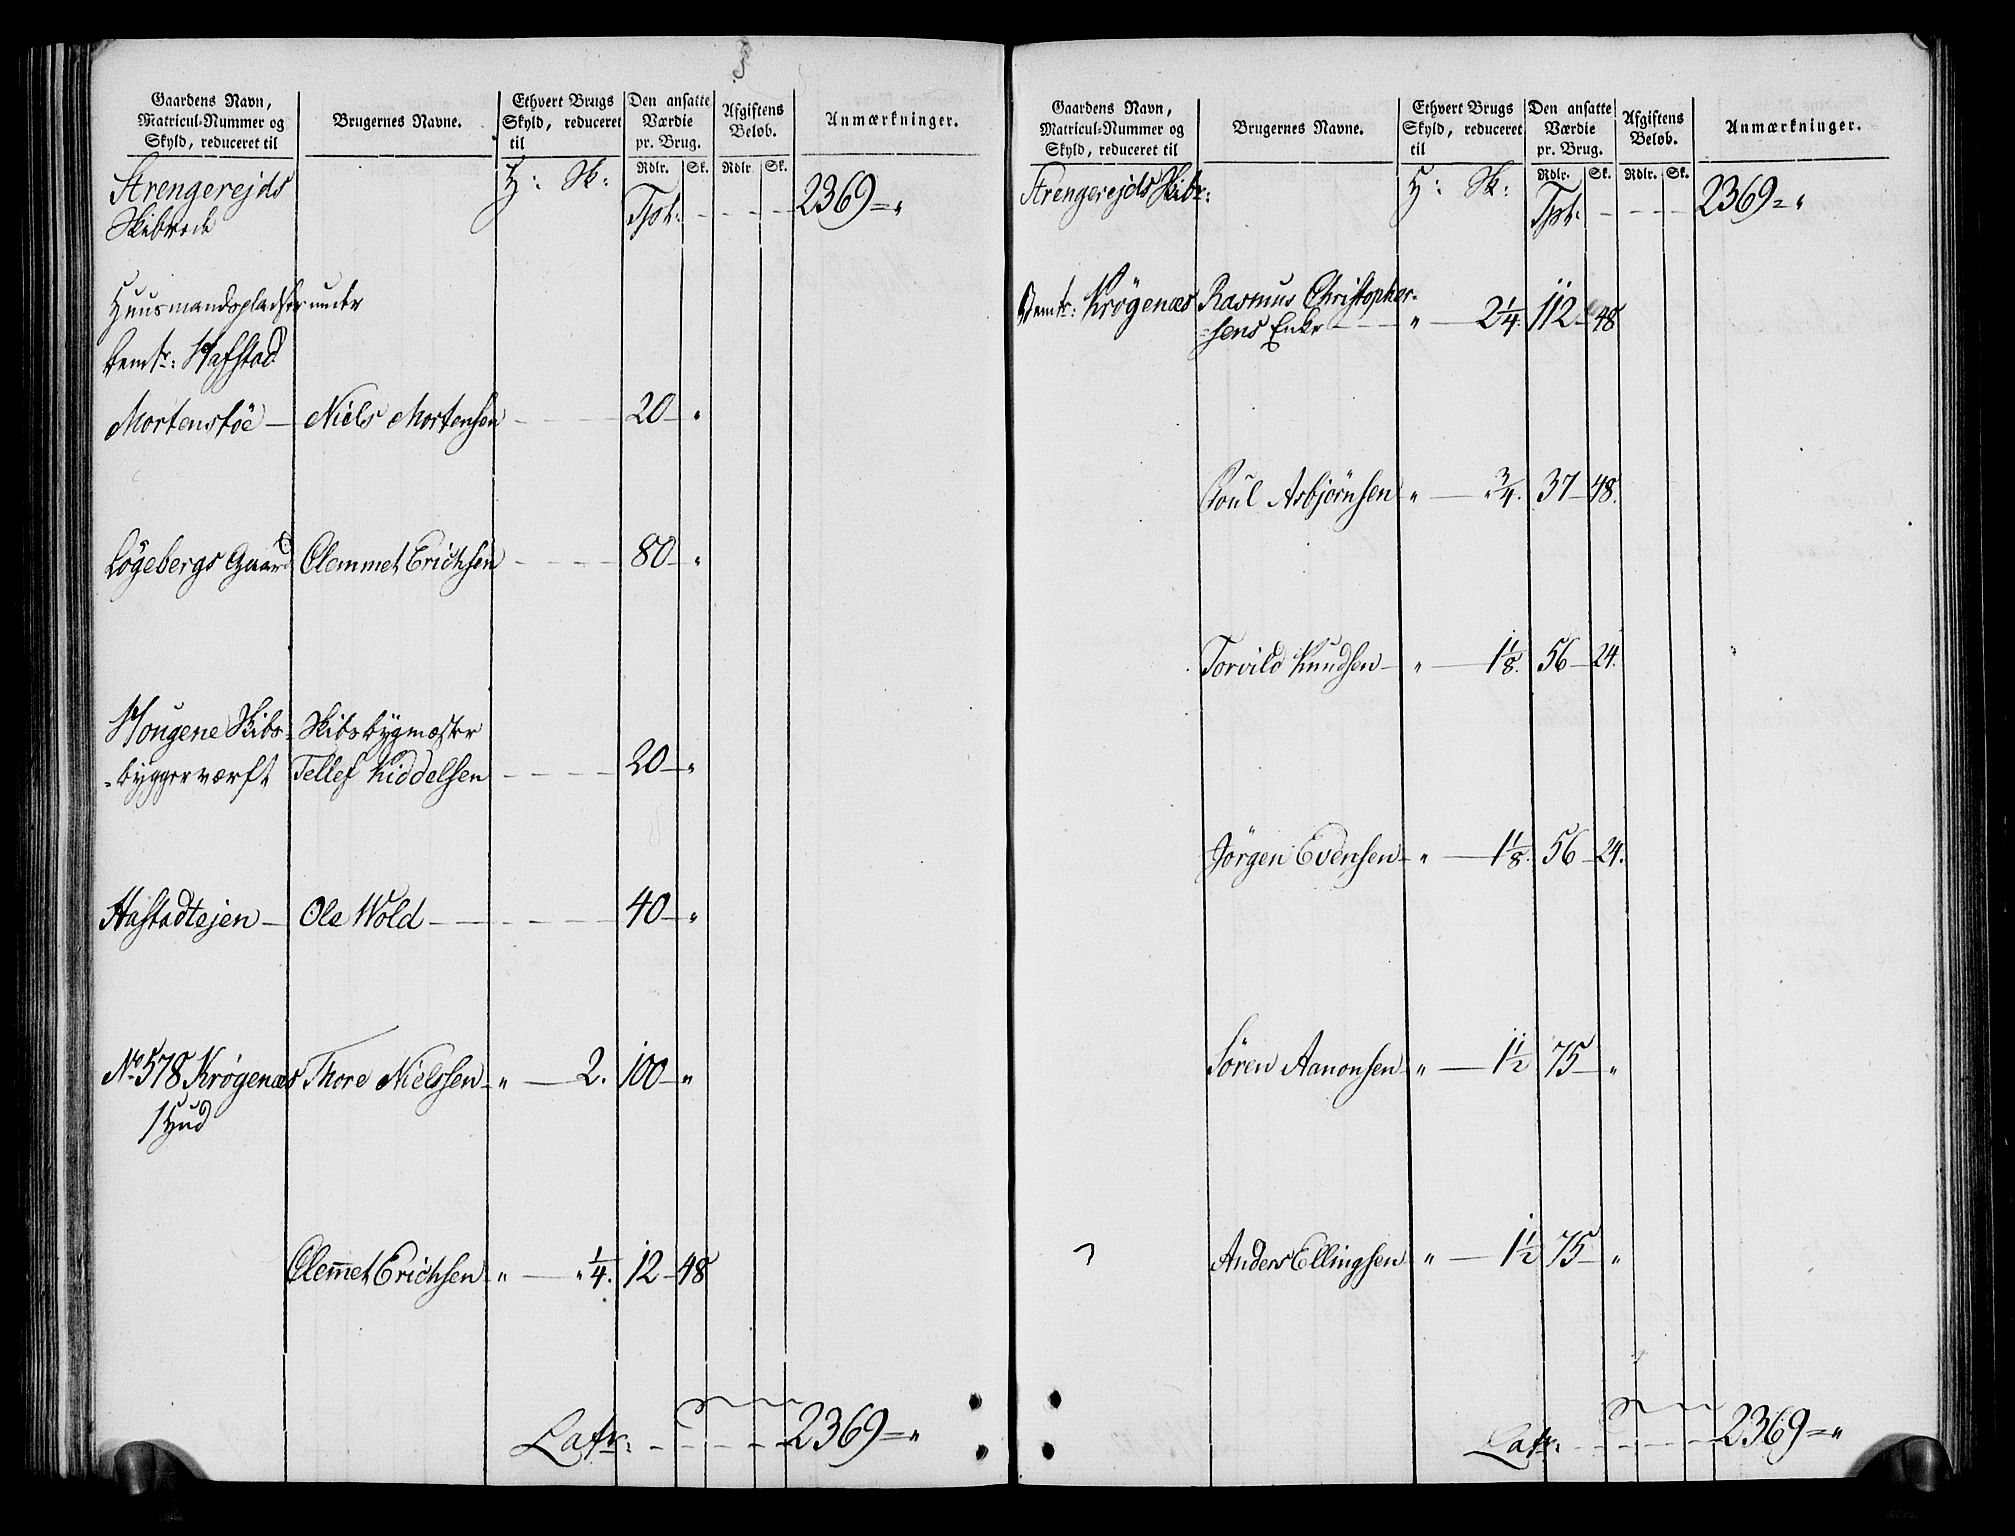 Gaardens Navn,
Matricul-Nummer og
Skyld, reduceret til
Brugernes Navne.
Ethvert Brugs
Skyld, reduceret
til
Den ansatte
Værdie
pr. Brug.
Afgiftens
Beløb.
Anmærkninger.
Rdlr. Sk. Rdlr. Sk.
Strengerejds H: Sk: Tpt: 2369 = "
Skibrede
Huusmandspladser under
bemte: Hafstad
Mortenstøe Niels Mortensen 20 "
Løgebergs Gaard Clemmet Erichsen 80 "
Hougene Skibs- Skibsbygmæster
=bygger værft Tellef Kiddelsen 20 "
Hafstadtejen Ole Wold 40 "
No 578 Krøgenæs Thore Nielssen " 2. 100 "
1 Hud
Clem̅et Erichsen " " 1/4. 12 48
Latr: 2369 = "
Gaardens Navn,
Matricul-Nummer og
Skyld, reduceret til
Brugernes Navne.
Ethvert Brugs
Skyld, reduceret
til
Den ansatte
Værdie
pr. Brug.
Afgiftens
Beløb.
Anmærkninger.
Rdlr. Sk. Rdlr. Sk.
Strengerejds Skibr: H: Sk: Tpt: 2369 = "
Bemte: Krøgenæs Rasmus Christopher-
=sens Enke " 2 1/4. 112 48
Poul Asbjørnsen " " 3/4. 37 48.
Torvild Knudsen " 1 1/8. 56 24.
Jørgen Evensen " 1 1/8. 56 24.
Søren Aanonsen " 1 1/2 75 "
Anders Ellingsen " 1 1/2 75 "
Latr: 2369 = "